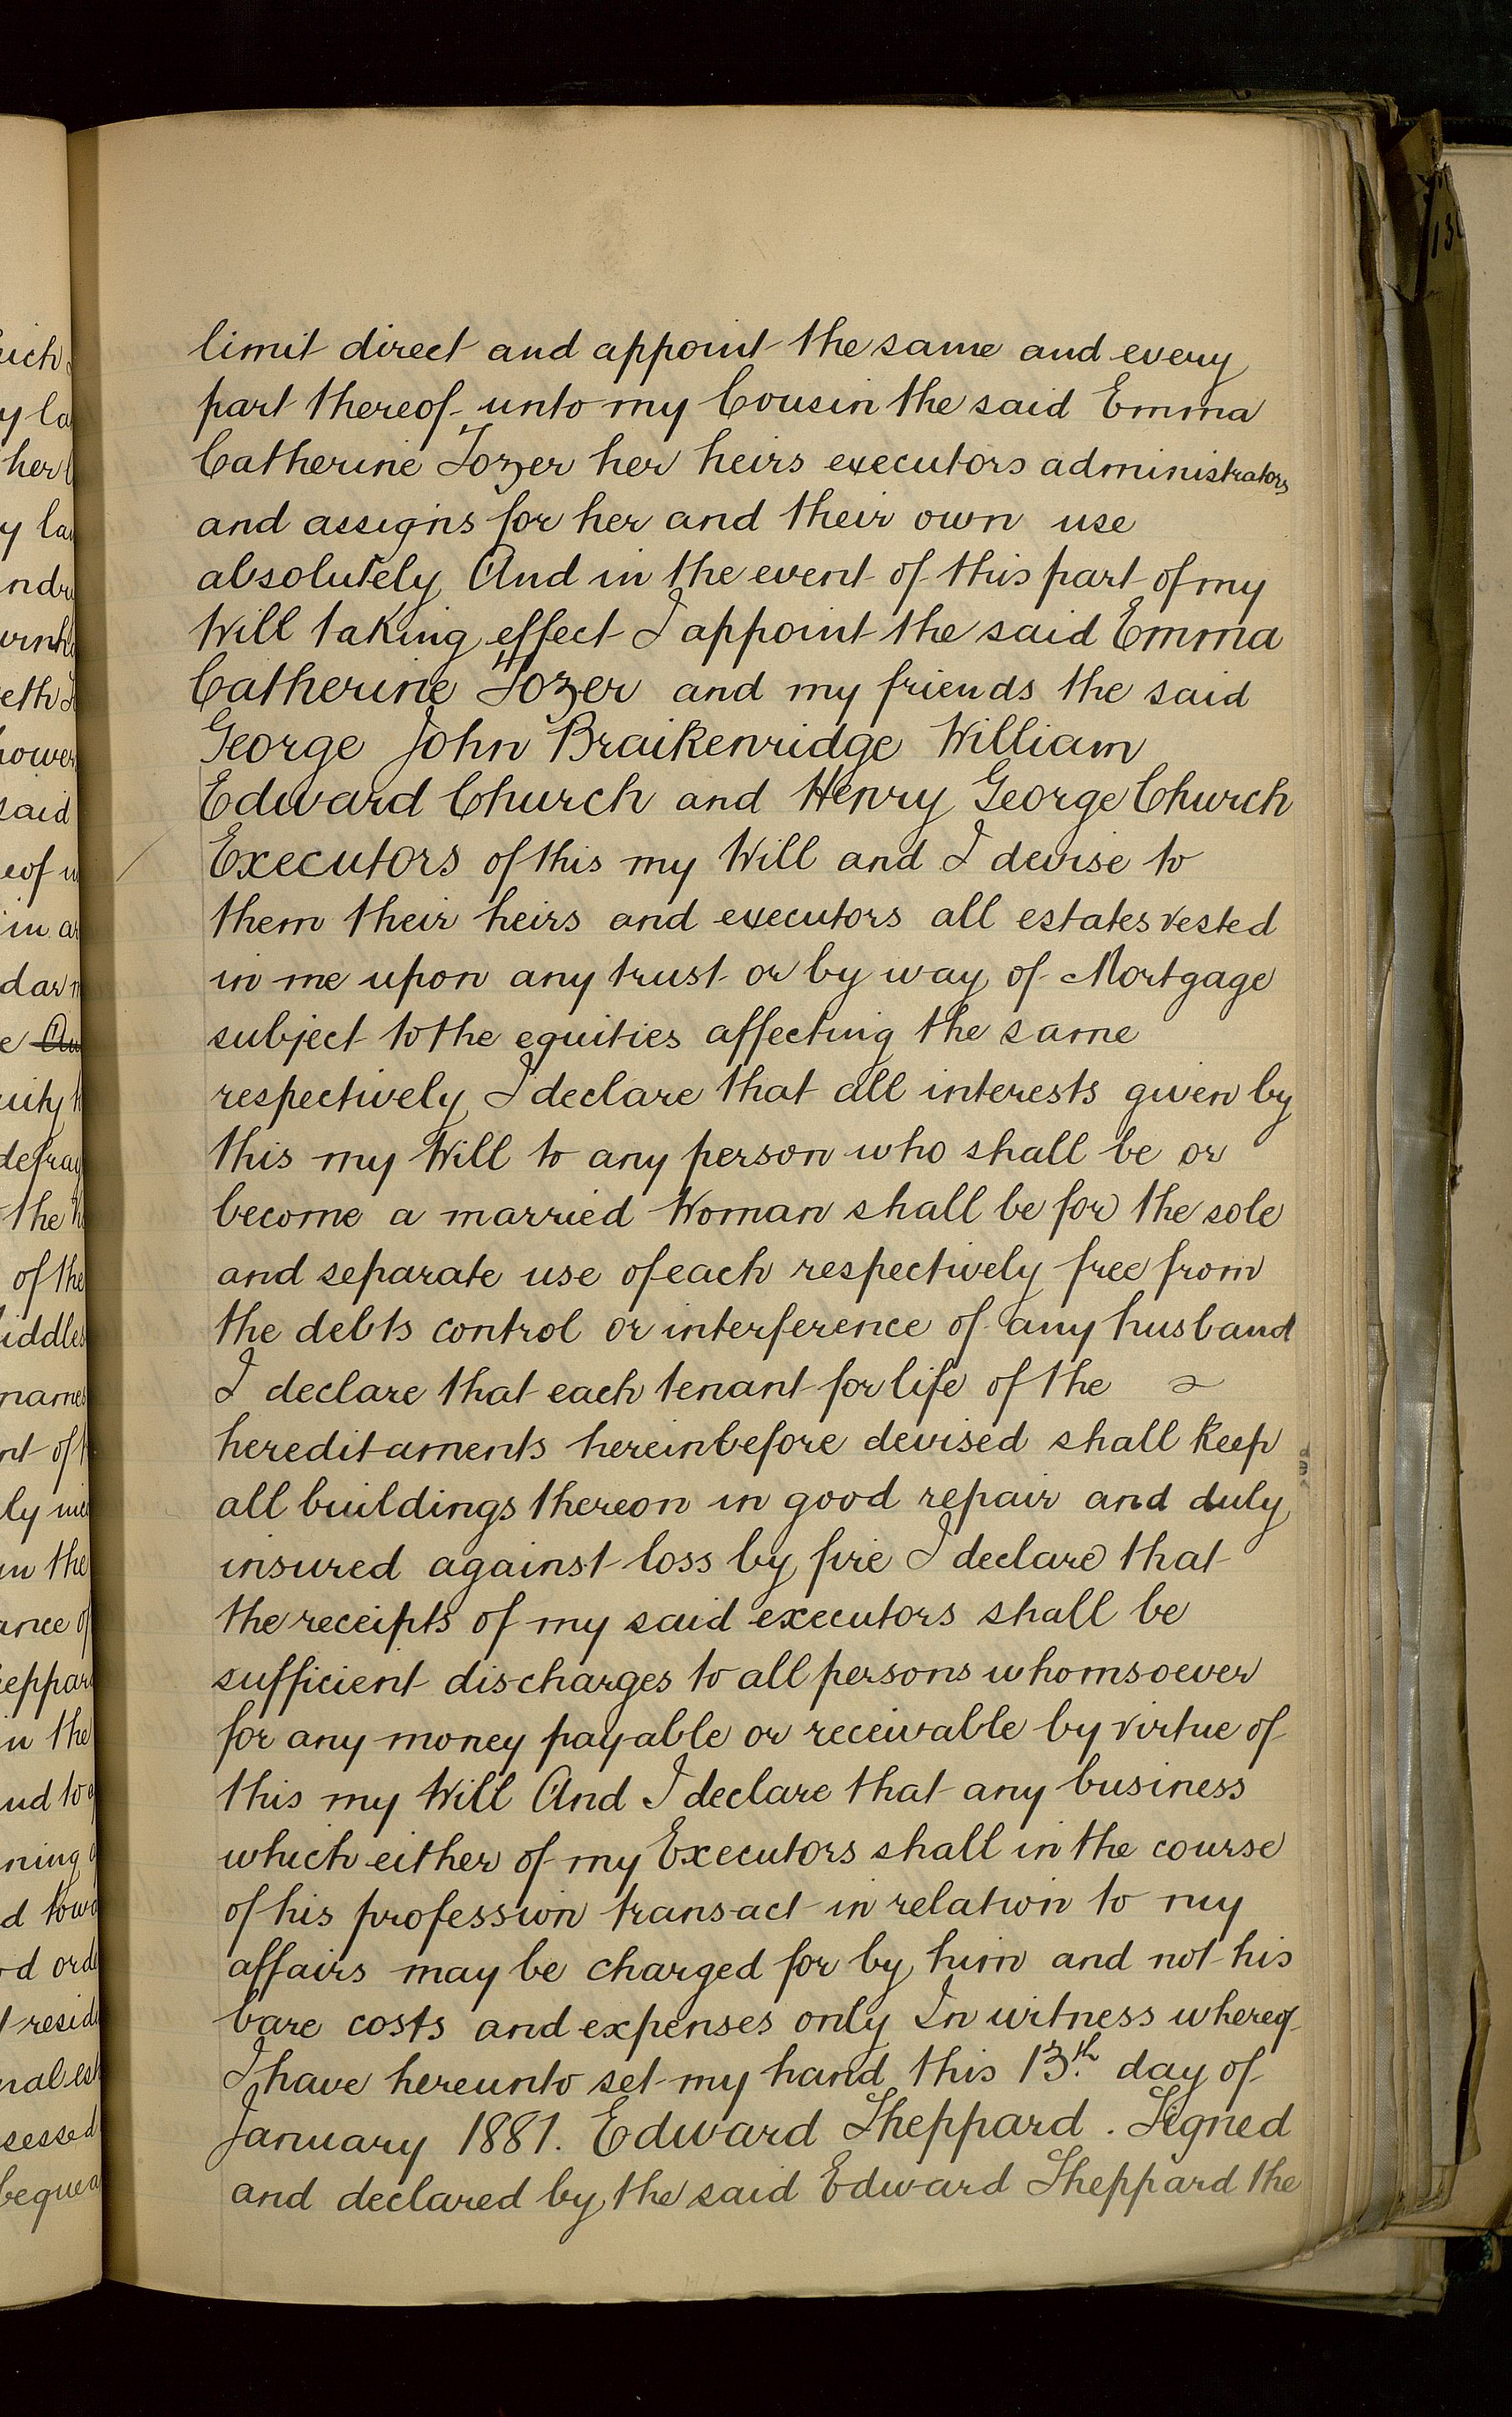 limit direct and appoint the same and every
part thereof unto my Cousin the said Emma
Catherine Tozer her heirs executors administrators
and assigns for her and their own use
absolutely And in the event of this part of my
Will taking effect I appoint the said Emma
Catherine Tozer and my friends the said
George John Braikenridge William
Edward Church and Henry George Church
Executors of this my Will and I devise to
them their heirs and executors all estates vested
in me upon any trust or by way of Mortgage
subject to the equities affecting the same
respectively I declare that all interests given by
this my Will to any person who shall be or
become a married Woman shall be for the sole
and separate use of each respectively free from
the debts control or interference of any husband
I declare that each tenant for life of the
hereditaments hereinbefore devised shall keep
all buildings thereon in good repair and duly
insured against loss by fire I declare that
the receipts of my said executors shall be
sufficient discharges to all persons whomsoever
for any money payable or receivable by virtue of
this my Will And I declare that any business
which either of my Executors shall in the course
of his profession transact in relation to my
affairs may be charged for by him and not his
bare costs and expenses only In witness whereof
I have hereunto set my hand this 13th day of
January 1881. Edward Sheppard. Signed
and declared by the said Edward Sheppard the